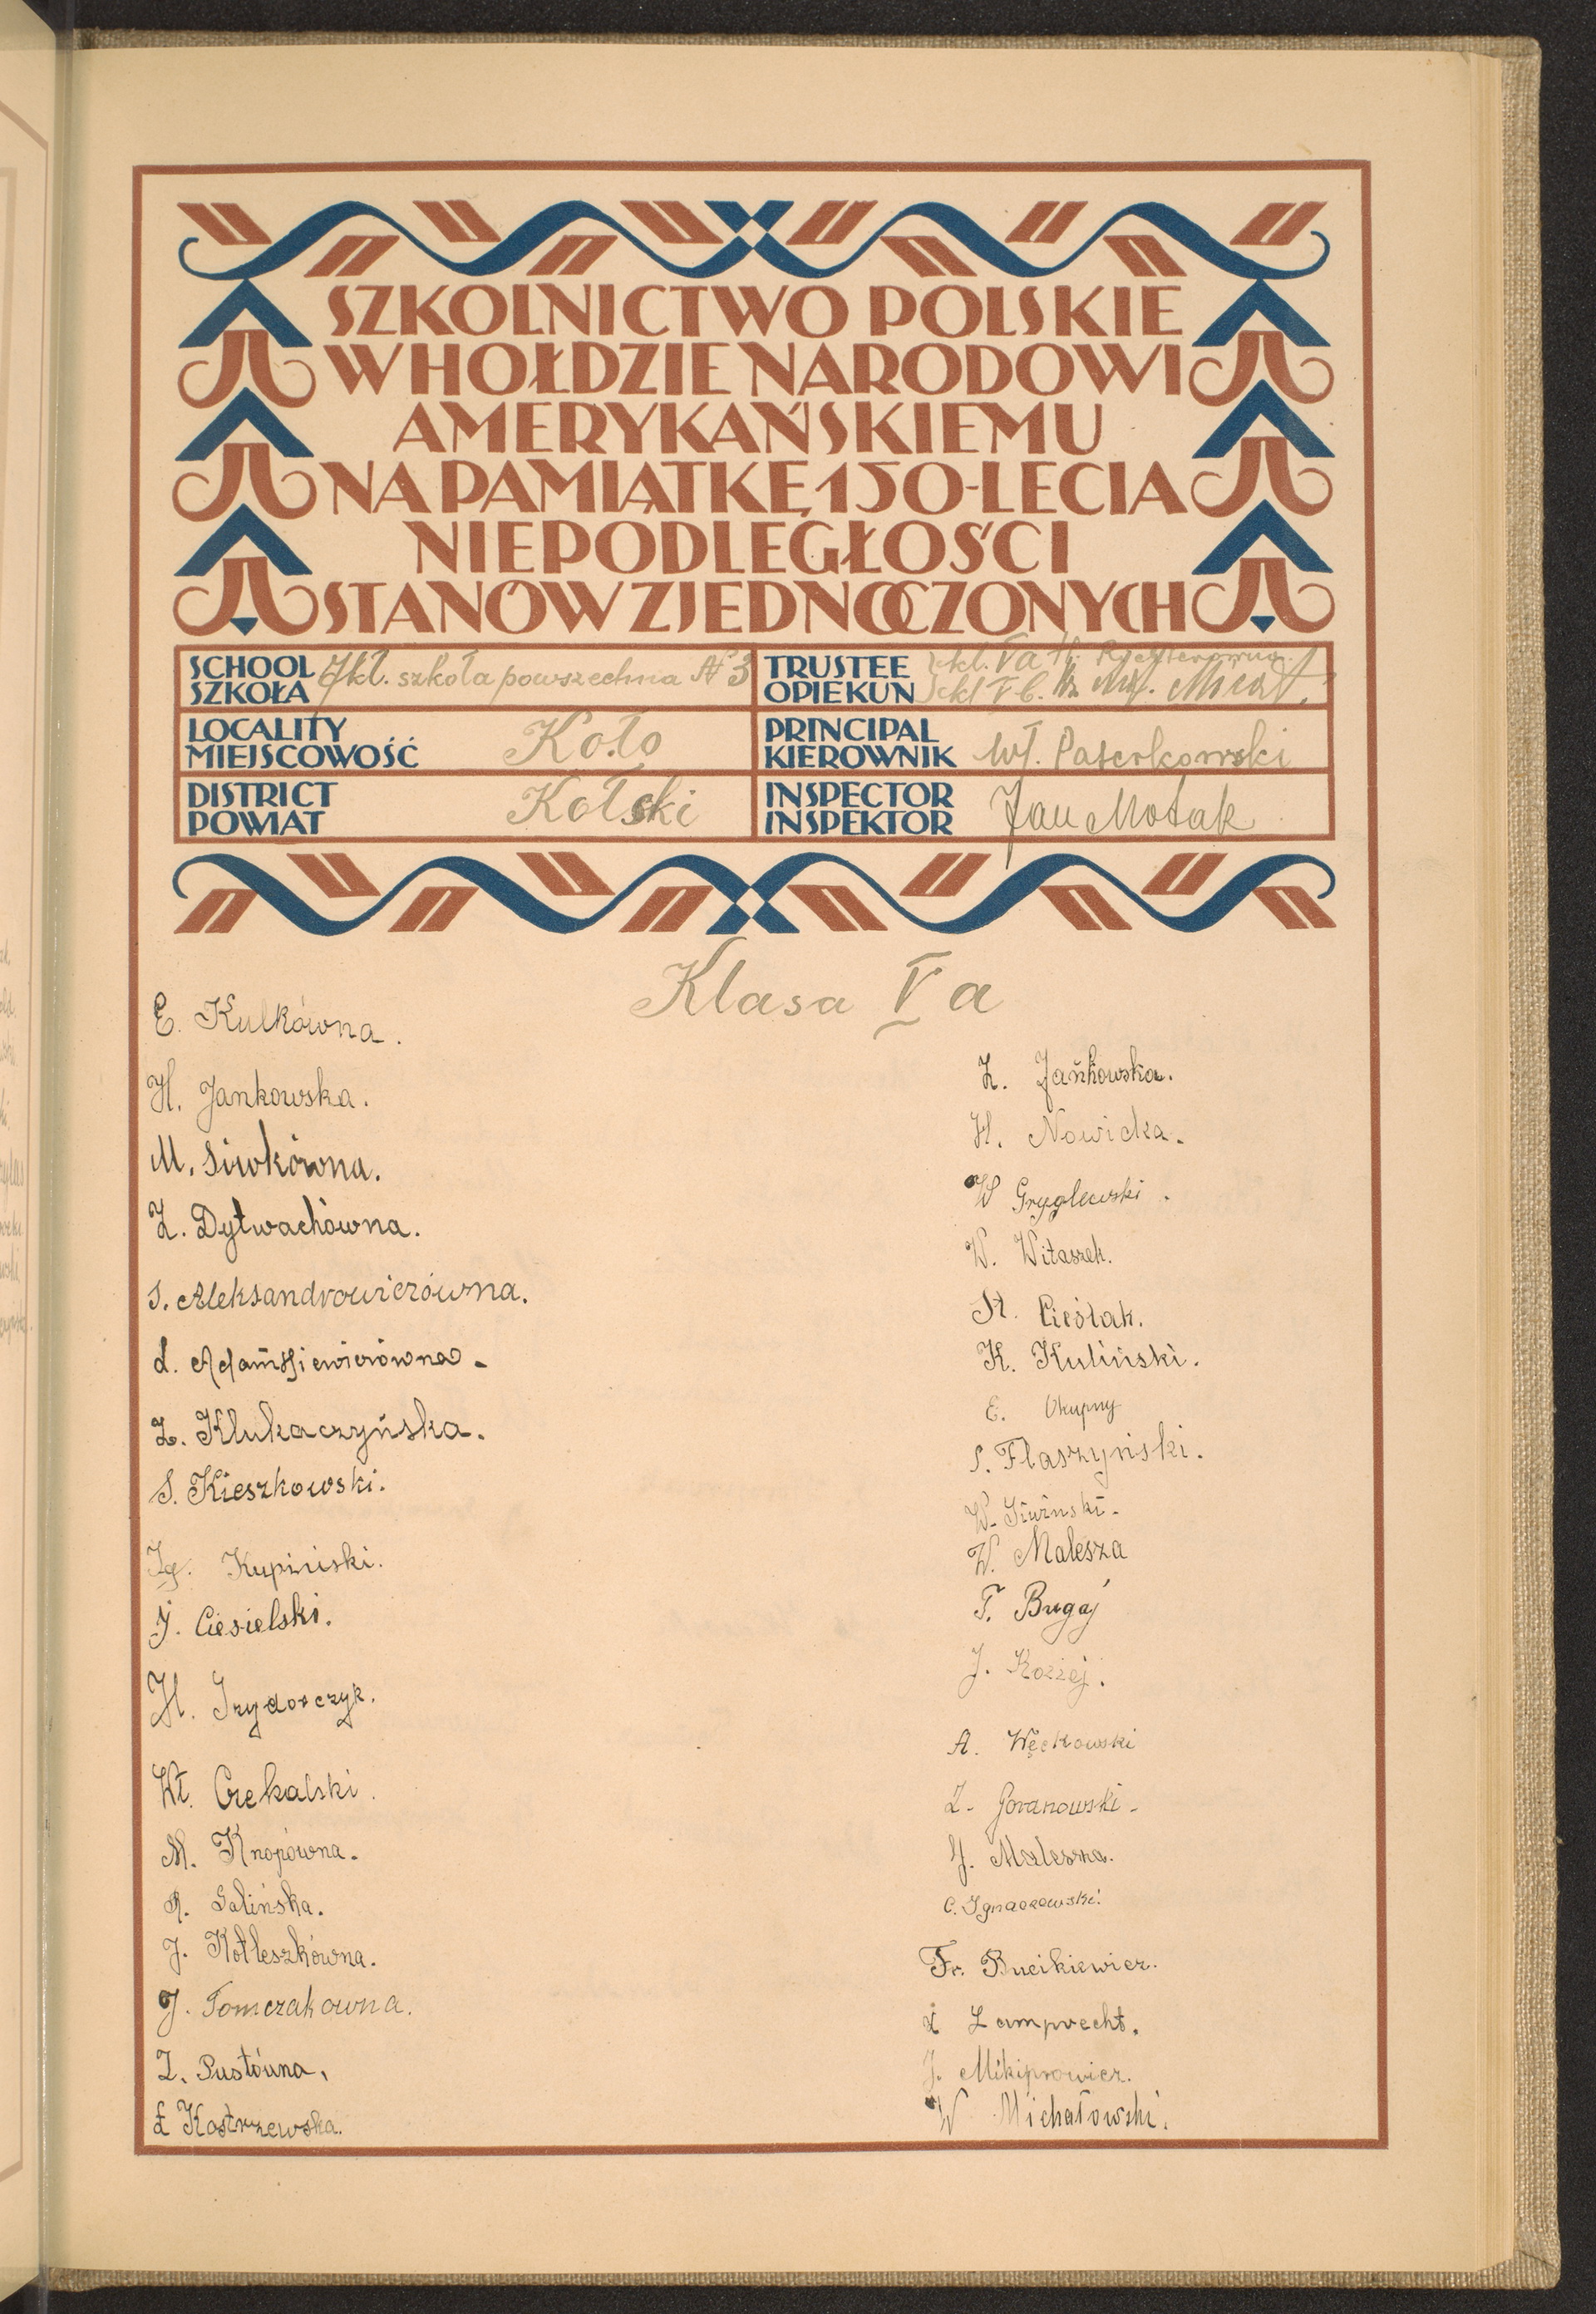 SZKOLNICTWO POLSKIE
W HOŁDZIE NARODOWI
AMERYKAŃSKIEMU
NA PAMIĄTKĘ 150-LECIA
NIEPODLEGŁOŚCI
STANÓW ZJEDNOCZONYCH
SCHOOL
SZKOŁA
7kl. szkoła powszechna № 3
TRUSTEE
OPIEKUN
kl. Va H.
kl V b.
LOCALITY
MIEJSCOWOŚĆ
Koło
PRINCIPAL
KIEROWNIK
Wł. Paserkowski
DISTRICT
POWIAT
Kolski
INSPECTOR
INSPEKTOR
Jan Motak
Klasa V a
E. Kulkówna.
H. Jankowska.
M. Siwkówna.
Z. Dytwachówna.
S. Aleksandrowiczówna.
Z. Klukaczyńska.
S. Kieszkowski.
Ig. Kupiński.
J. Ciesielski.
H. Izydorczyk.
Wł. Czekalski.
M. Knopówna.
R. Galińska.
J. Kotleszkówna.
J. Tomczakowna.
Z. Pustówna.
Ł Kostrzewska.
Z. Jańkowska.
H. Nowicka.
W Gryglewski.
W. Witaszek.
St. Cieślak.
K. Kuliński.
E. Okupny
S. Flaszyński.
W. Siwinski.
W. Malesza
F. Bugaj
J. Koziej.
A. Węckowski
Z. Goranowski.
J. Malesza.
C. Ignaczewski.
Fr. Bucikiewicz.
Lamprecht.
J. Mikiprowicz.
W Michałowski.